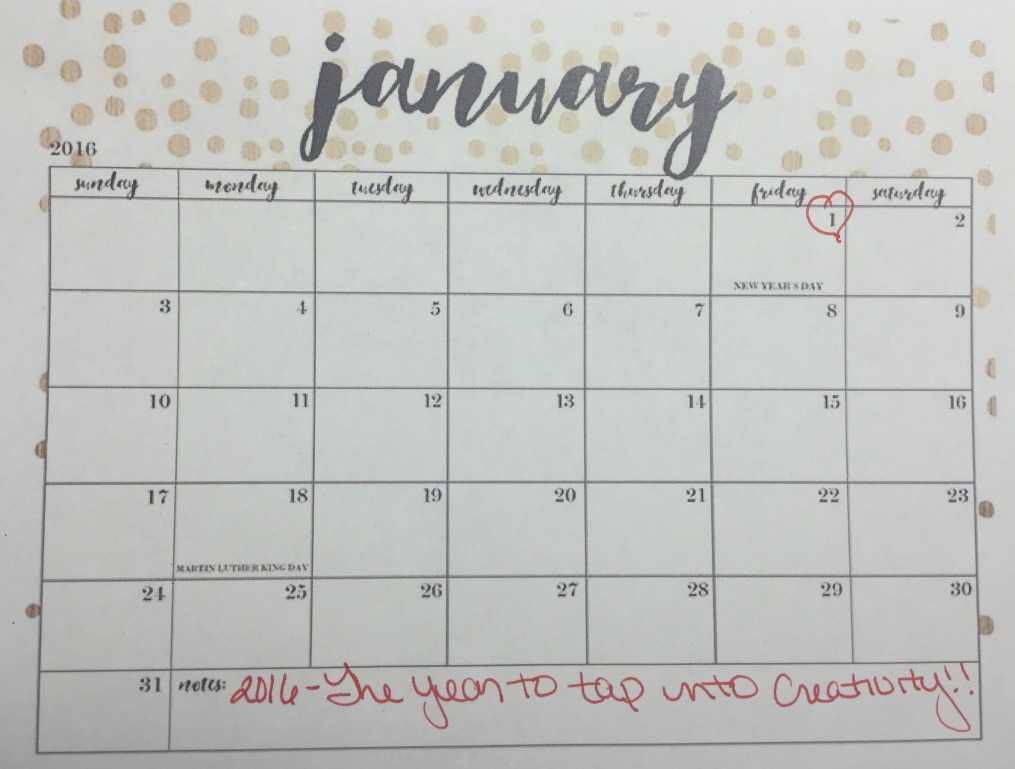 january
2016
sunday monday tuesday wednesday thursday friday saturday
1 2
NEW YEAR'S DAY
3 4 5 6 7 8 9
10 11 12 13 14 15 16
17 18 19 20 21 22 23
MARTIN LUTHER KING DAY
24 25 26 27 28 29 30
31 notes: 2016-The year to tap into Creativity!!